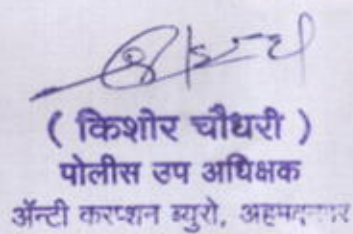 ( किशोर चौधरी )
पोलीस उप अधिक्षक
ॲन्टी करप्शन ब्युरो, अहमदनगर